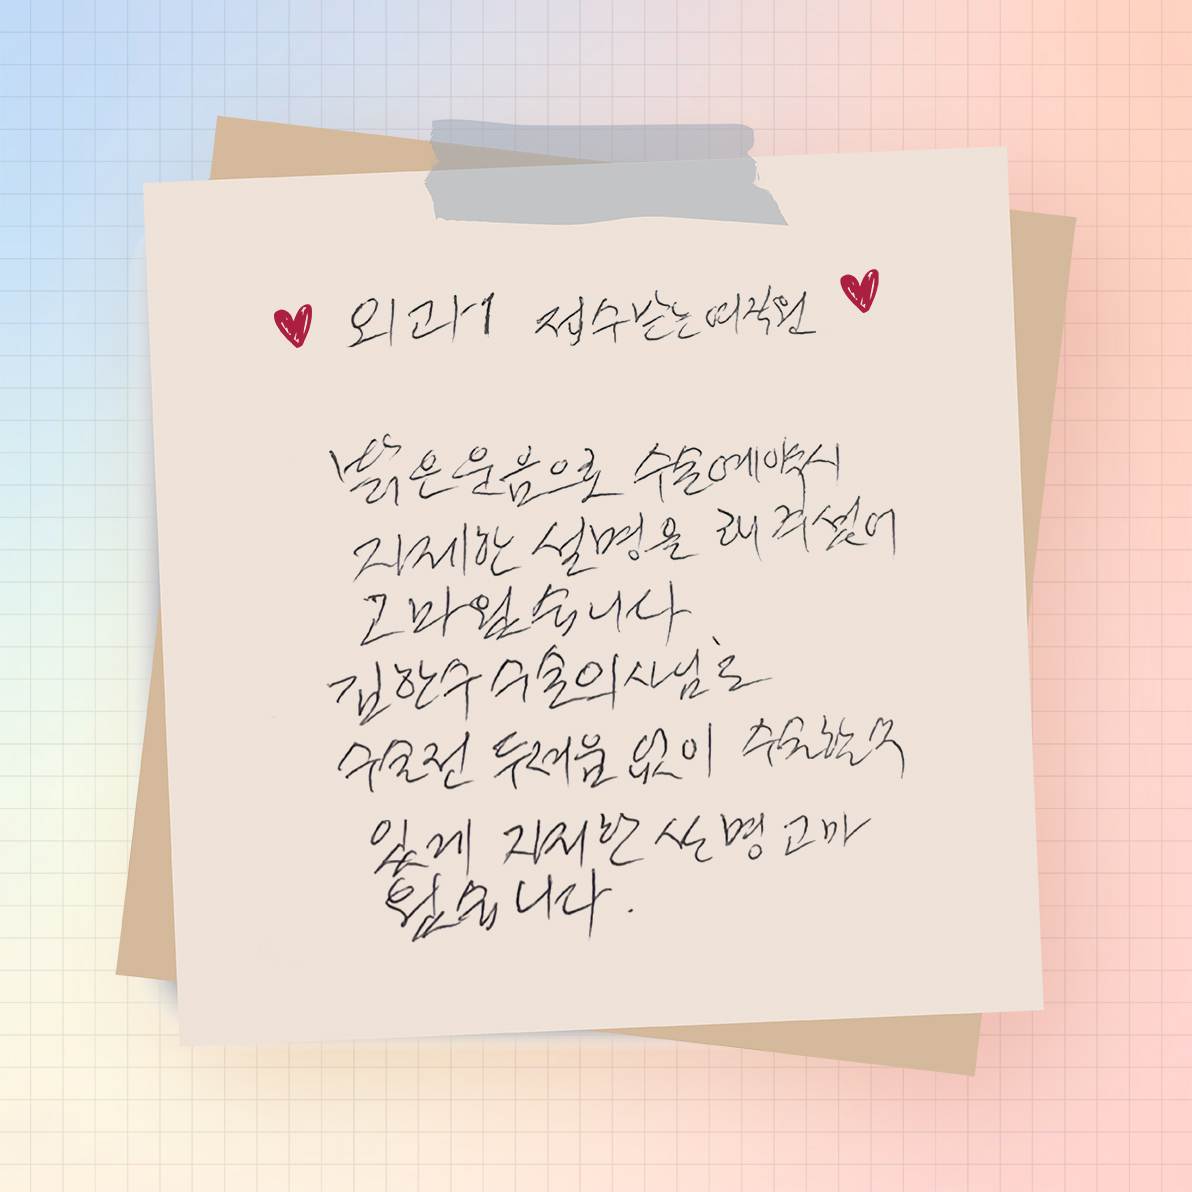 외과1 접수받는 여직원
밝은 웃음으로 수술예약시
자제한 설명을 해 주셨어
고마웠습니다
김한수 수술의사님도
수술전 두려움 없이 수술할수
있게 자제한 설명 고마
웠습니다.